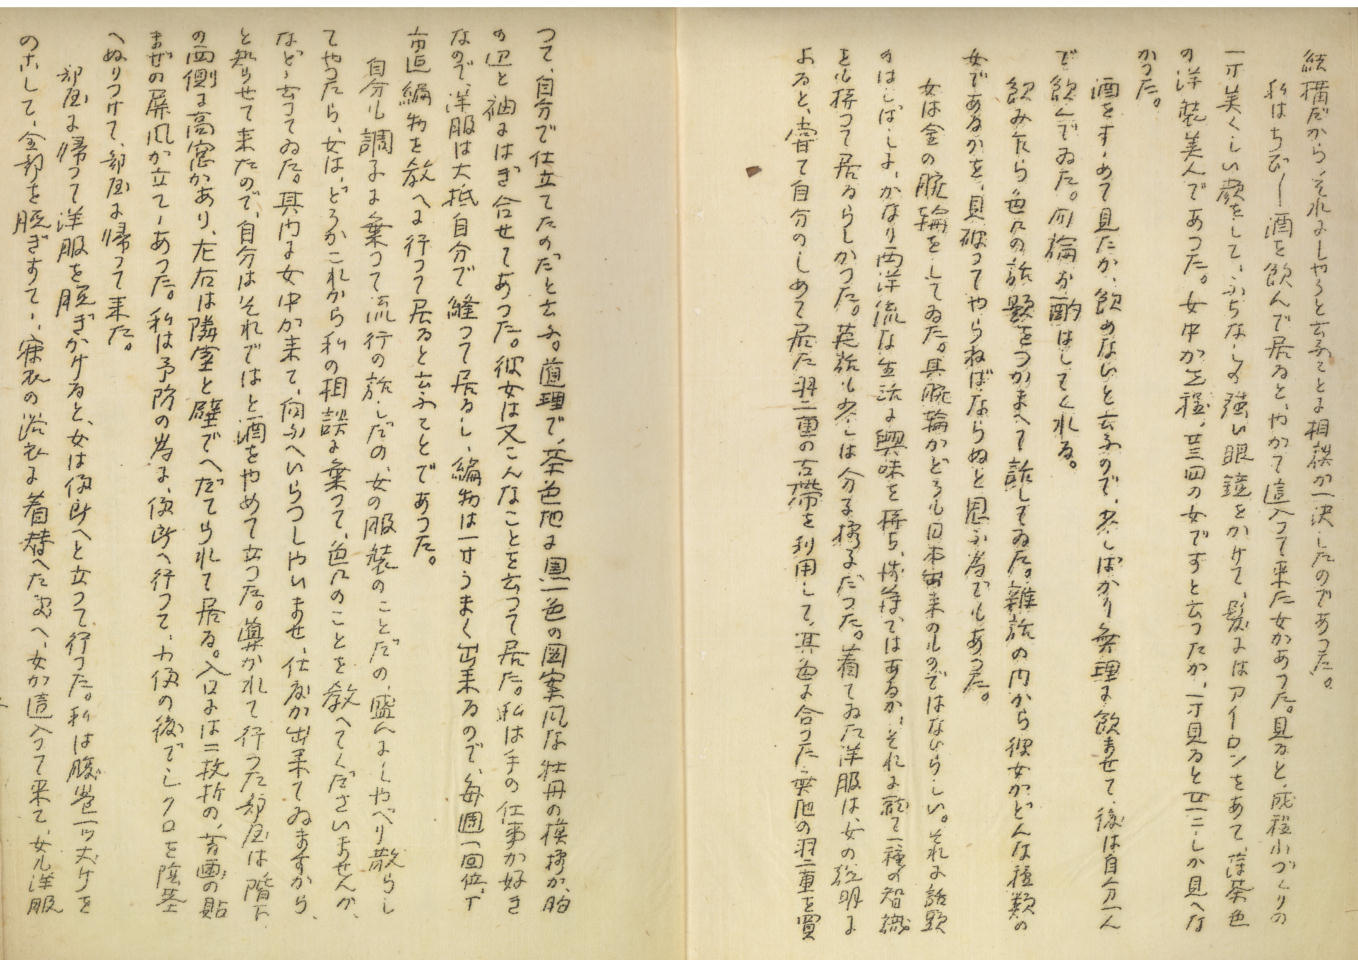 結構だから、それにしやうと云ふことに相談が一決したのであつた。
私はちびー酒を飲んで居ると、やがて這入つて来た女があつた。見ると、成程小づくりの
一寸美くしい顔をして、ふちなしの強い眼鏡をかけて、髪にはアイロンをあて、薄茶色
の洋装美人であつた。女中が左程、廿三四の女ですと云つたが、一寸見ると廿一二しか見へな
かつた。
酒をすゝめて見たが、飲めないと云ふので、少しばかり無理に飲ませて、後は自分一人
で飲んでゐた。勿論お酌はしてくれる。
飲みたら色々の話題をつかまへて話してゐた。雑談の内から彼女がどんな種類の
女であるかを、見破つてやらねばならぬと思ふ為でもあつた。
女は金の腕輪をしてゐた。其腕輪がどうも日本出来のものではないらしい。それに話題
のはしばしに、かなり西洋流な生活に興味を持ち、断片ではあるが、それに就て一種の智識
を心持つて居るらしかつた。英語も少しは分る様子だつた。着てゐた洋服は、女の説明に
よると、嘗て自分のしめて居た羽二重の古帯を利用して、其色に合つた無地の羽二重を買
つて、自分で仕立てたのだと云ふ。道理で、茶色地に黒一色の図案風な牡丹の模様が、胸
の辺と袖にはぎ合せてあつた。彼女は又こんなことを云つて居た。私は手の仕事が好き
なので、洋服は大抵自分で縫つて居るし、編物は一廿うまく出来るので、毎週一回位、丁
市迄編物を教へに行つて居ると云ふことであつた。
自分も調子に乗つて流行の話しだの、女の服装のことだの、盛んにしやべり散らし
てやつたら、女は、どうかこれから私の相談に乗つて、色々のことを教へてくださいませんか、
などゝ云つてゐた。其内に女中が来て、向ふへいらつしやいませ、仕度が出来てゐますから、
と知らせて来たので、自分はそれではと酒をやめて立つた。導かれて行つた部屋は階下
の西側に高窓があり、左右は隣室と壁でへだてられて居る。入口には二枚折の、書画の貼
まぜの屏風が立てゝあつた。私は予防の為に、便所へ行つて、小便の後で、シクロを陰茎
へぬりつけて、部屋に帰つて来た。
部屋に帰つて洋服を脱ぎかけると、女は便所へと立つて行つた。私は腹巻一ツ丈けを
のこして、全部を脱ぎすてゝ、寝衣の浴衣に着替へた処へ、女が這入つて来て、女も洋服